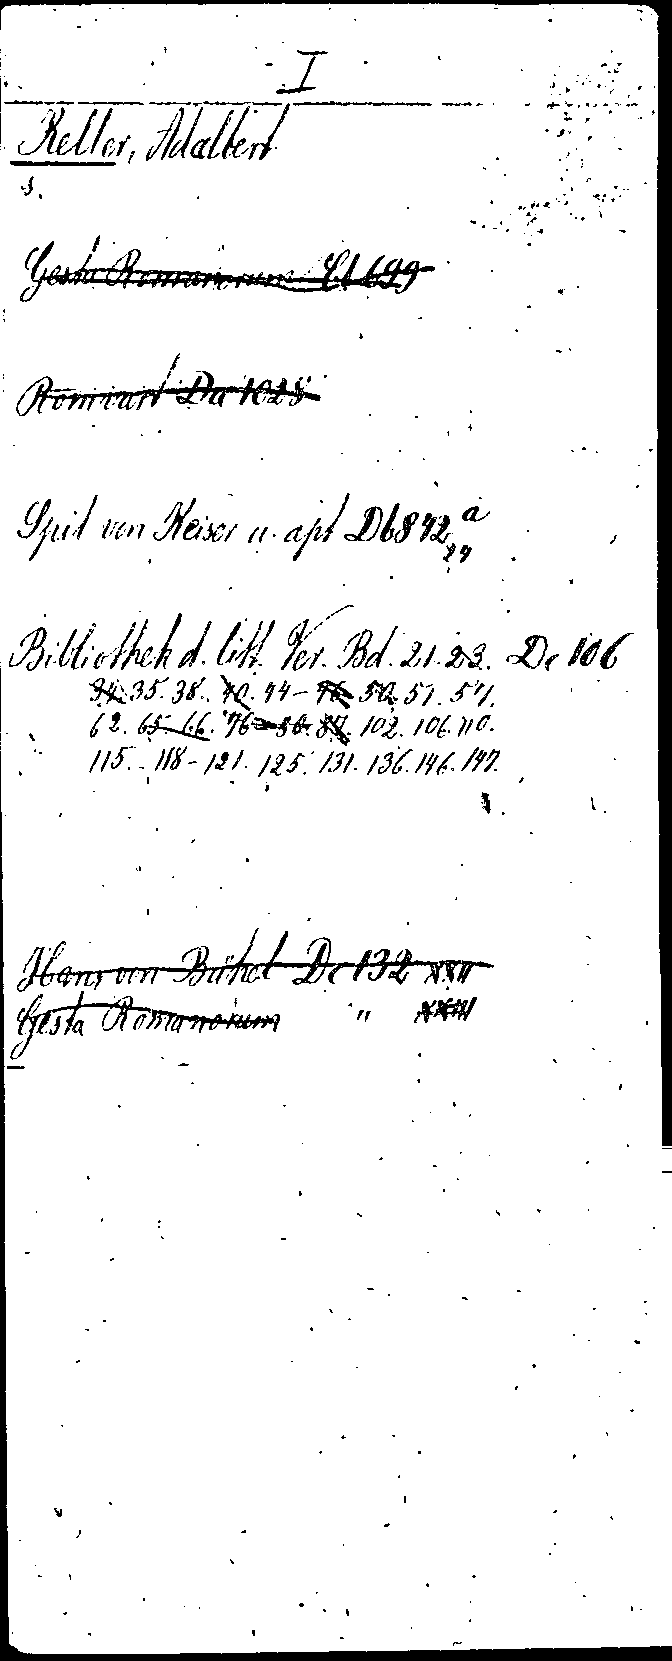 I
Keller, Adalbert
s.
Gesta Romanorum Cd 699
Romvart Da 1028
Spil von Keiser u. apt Db 892 a
24
Bibliothek d. litt. Ver. Bd. 21. 23. De 106
34. 35. 38. 40. 44-46. 50. 51. 54.
62. 65. 66. 76-80. 87. 102. 106. 110.
115. 118-121. 125. 131. 136. 146. 147.
Hans von Bühel De 132 XXII
Gesta Romanorum " XXIII